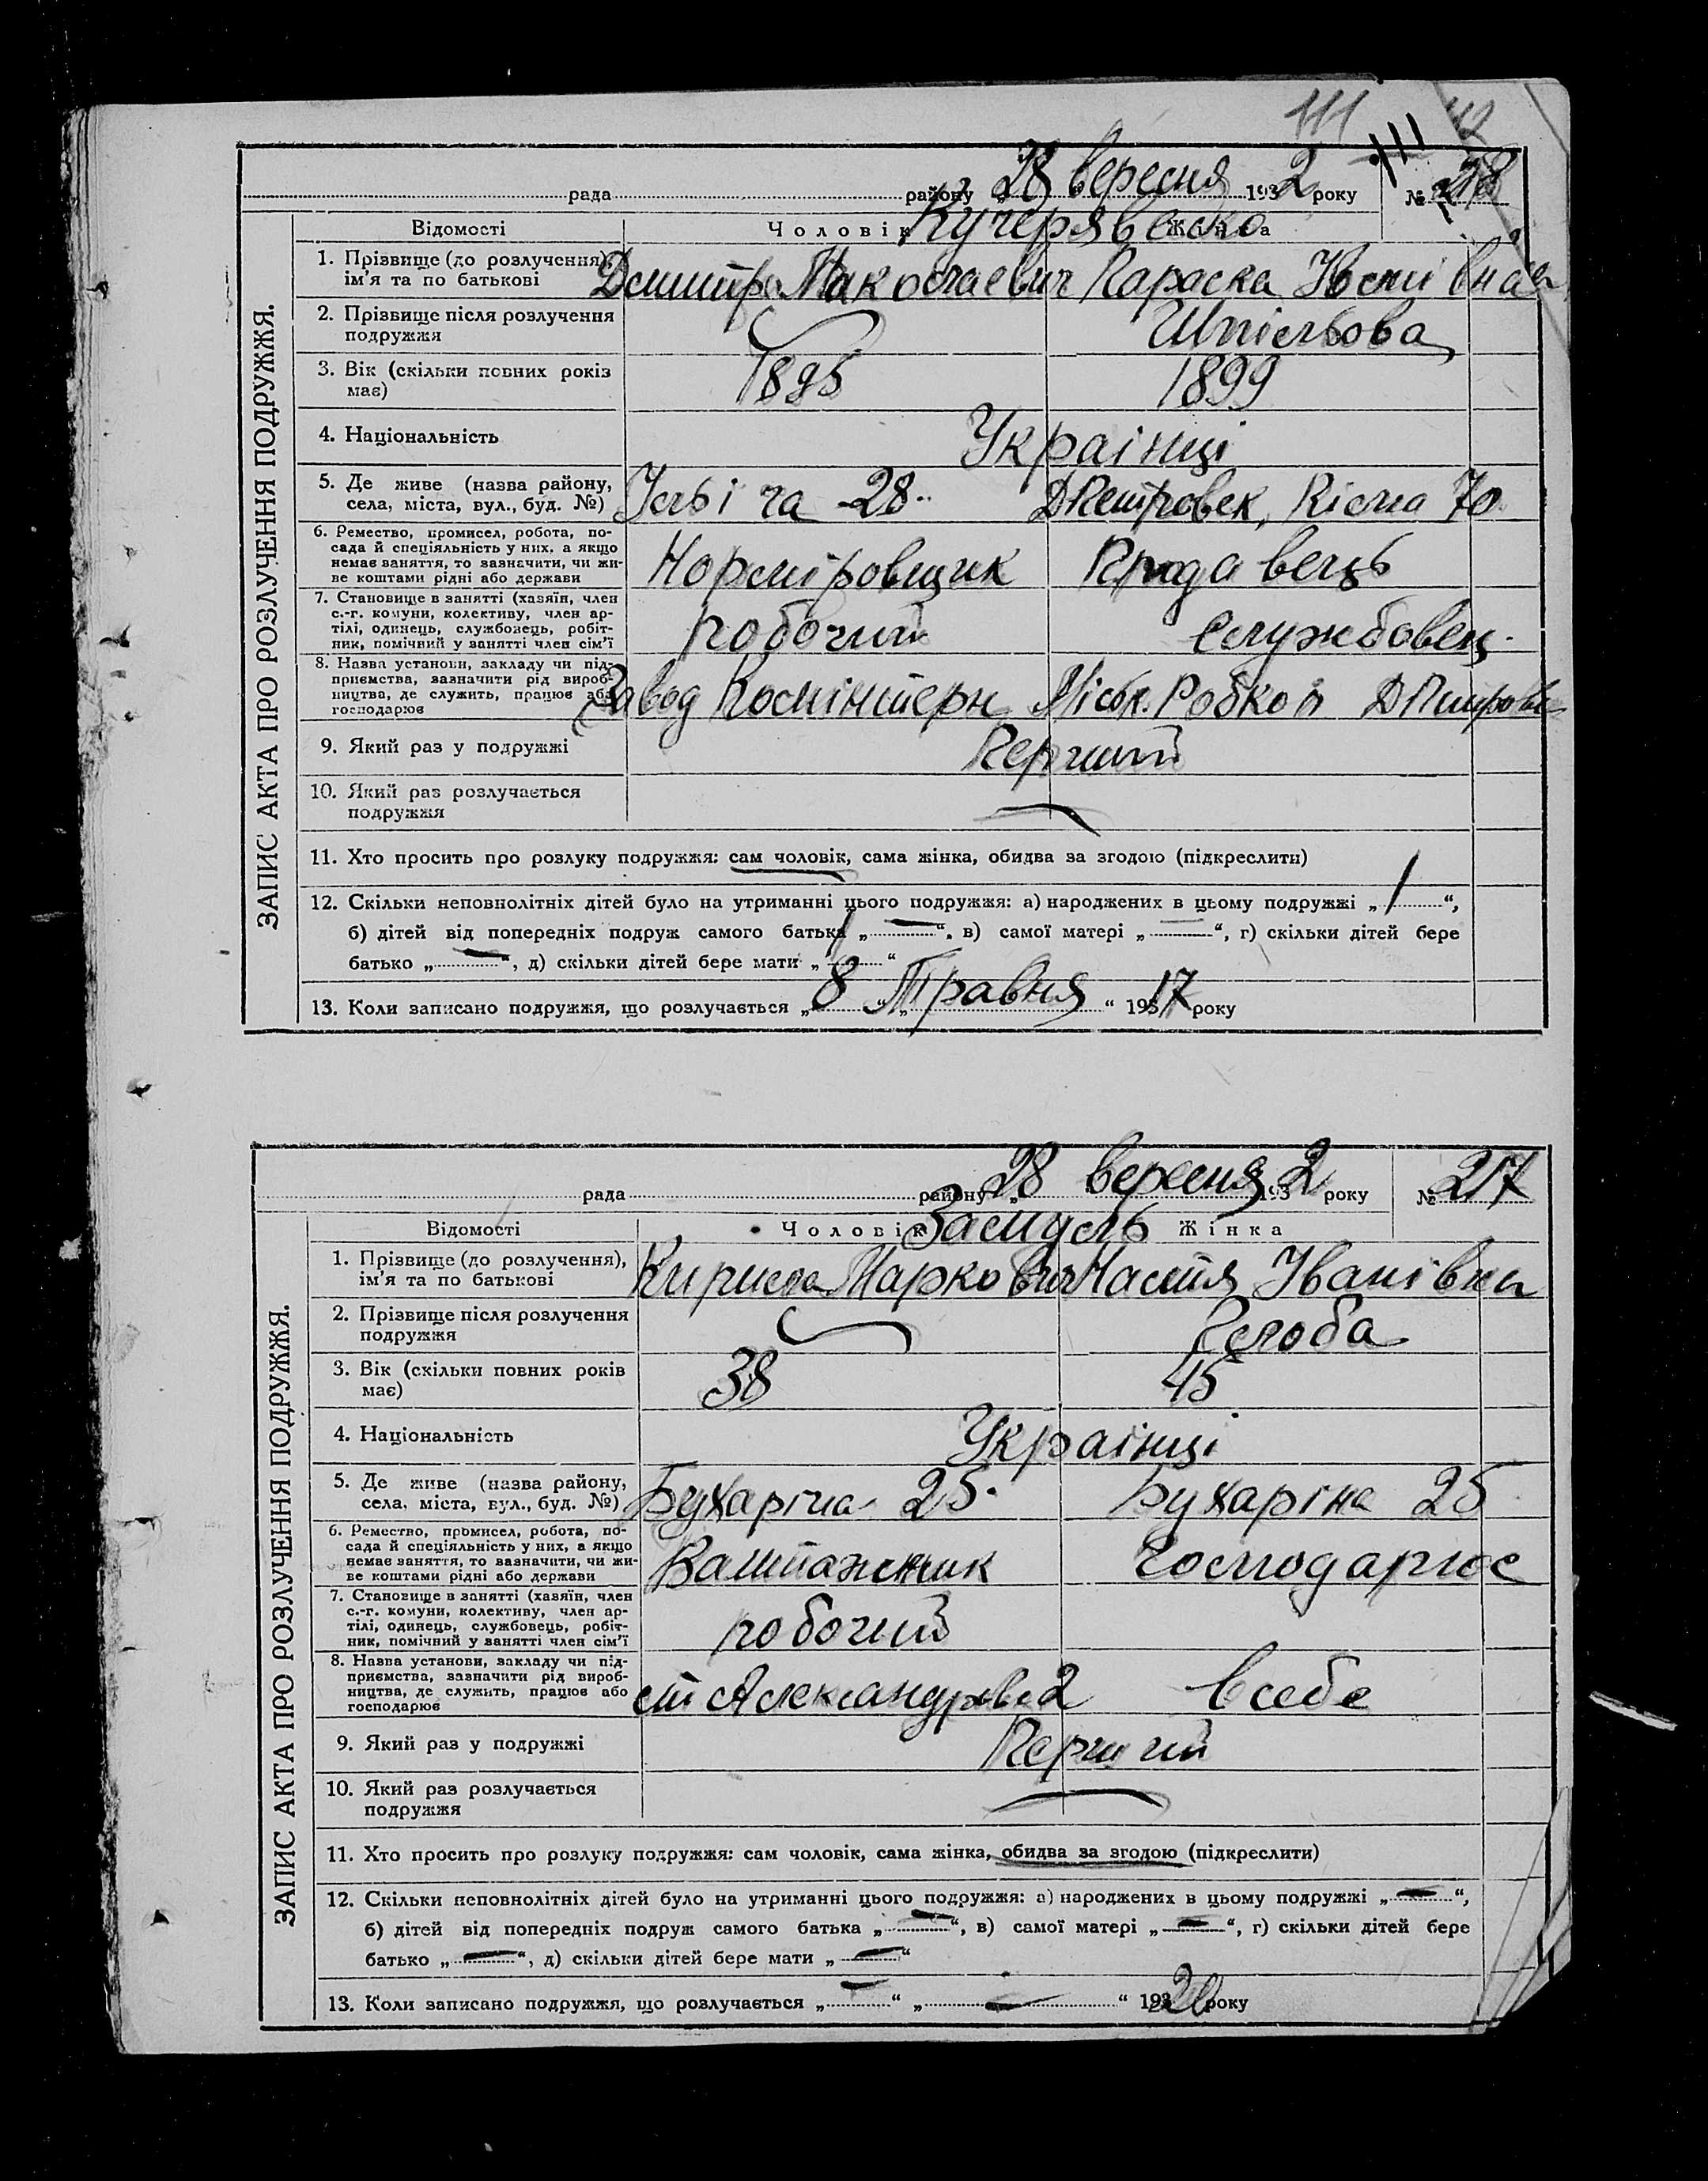 111 111 42
рада района 28 вересня 1932 року № 218
Відомості Чоловік Жінка
Кучерявенко
1. Прізвище (до розлучення), ім'я та по батькові Дмитро Параска
2. Прізвище після розлучення подружжя
3. Вік (скільки повних років має) 1895 1899
4. Національність Украінці
5. Де живе (назва району, села, міста, вул., буд. №) Ільіча 28 ДПетровск, 70
6. Ремество, промисел, робота, посада й спеціяльність у них, а якщо немає заняття, то зазначити, чи живе коштами рідні або держави Норміровщик Продавець
7. Становище в занятті (хазяїн, член с.-г. комуни, колективу, член артілі, одинець, службовець, робітник, помічний у занятті член сім'ї робочий службовец
8. Назва установи, закладу чи підприємства, зазначити рід виробництва, де служить, працює або господарює Завод Комінтерн Міськ. Робкоп ДПетровск
9. Який раз у подружжі Перший
10. Який раз розлучається подружжя
11. Хто просить про розлуку подружжя: сам чоловік, сама жінка, обидва за згодою (підкреслити)
12. Скільки неповнолітніх дітей було на утриманні цього подружжя: а) народжених в цьому подружжі „ 1 “,
б) дітей від попередніх подруж самого батька „ — “, в) самої матері „ — “, г) скільки дітей бере
батько „ — “, д) скільки дітей бере мати „ 1 “
13. Коли записано подружжя, що розлучається „ 8 “ „ Травня “ 1917 року
ЗАПИС АКТА ПРО РОЗЛУЧЕННЯ ПОДРУЖЖЯ.
рада району 28 вересня 1932 року № 217
Відомості Чоловік Жінка
Замула
1. Прізвище (до розлучення), ім'я та по батькові Кирило Маркович Настя Іванівна
2. Прізвище після розлучення подружжя
3. Вік (скільки повних років має) 38 45
4. Національність Украінці
5. Де живе (назва району, села, міста, вул., буд. №) Бухаріна 25 Бухаріна 25
6. Ремество, промисел, робота, посада й спеціяльність у них, а якщо немає заняття, то зазначити, чи живе коштами рідні або держави Вантажник Господарює
7. Становище в занятті (хазяїн, член с.-г. комуни, колективу, член артілі, одинець, службовець, робітник, помічний у занятті член сім'ї робочий
8. Назва установи, закладу чи підприємства, зазначити рід виробництва, де служить, працює або господарює ст Александров 2 в себе
9. Який раз у подружжі Перший
10. Який раз розлучається подружжя
11. Хто просить про розлуку подружжя: сам чоловік, сама жінка, обидва за згодою (підкреслити)
12. Скільки неповнолітніх дітей було на утриманні цього подружжя: а) народжених в цьому подружжі „ — “,
б) дітей від попередніх подруж самого батька „ — “, в) самої матері „ — “, г) скільки дітей бере
батько „ — “, д) скільки дітей бере мати „ — “
13. Коли записано подружжя, що розлучається „ — “ „ — “ 1920 року
ЗАПИС АКТА ПРО РОЗЛУЧЕННЯ ПОДРУЖЖЯ.